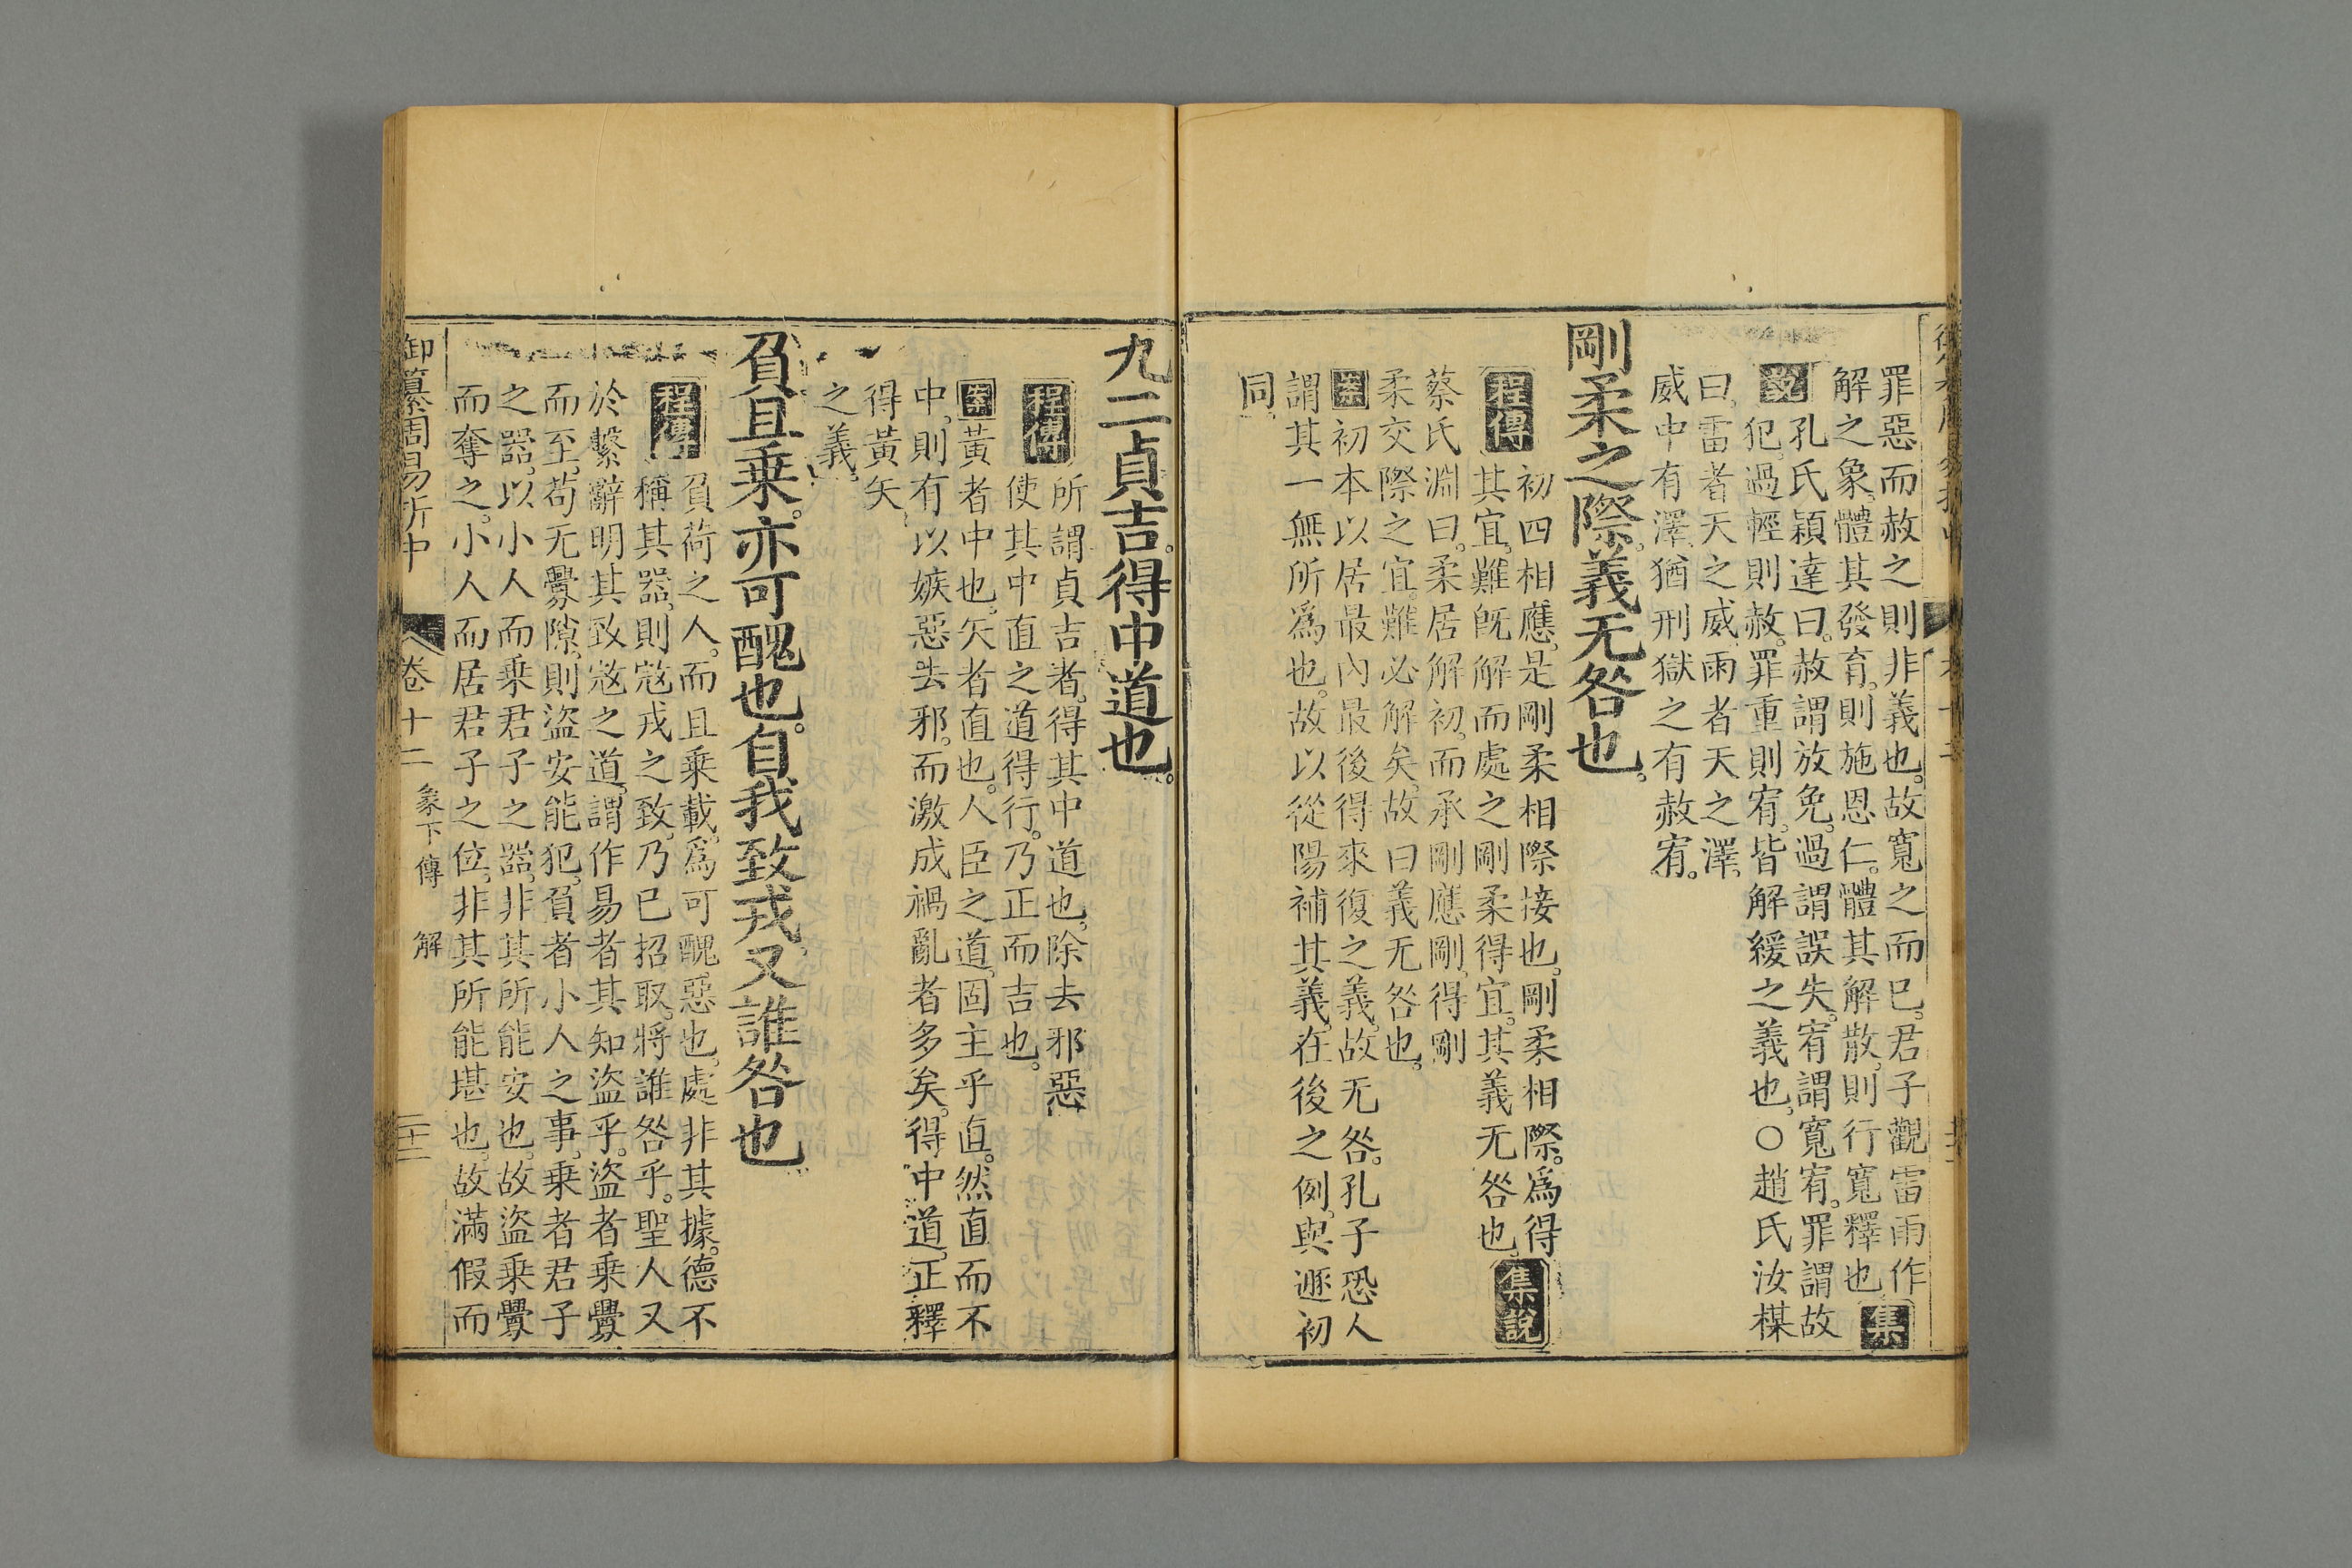 罪惡而赦之則非義也。故寬之而已。君子觀雷雨作
解之象。體其發育。則施恩仁。體其解散。則行寬釋也。集
說 孔氏穎達曰。赦謂放免。過謂誤失。宥謂寬宥。罪謂故
犯。過輕則赦。罪重則宥。皆解緩之義也。○趙氏汝楳
曰。雷者天之威。雨者天之澤。
威中有澤。猶刑獄之有赦宥。
剛柔之際。義无咎也。
程傳 初四相應。是剛柔相際接也。剛柔相際。為得
其宜。難旣解而處之剛柔得宜。其義无咎也。集說
蔡氏淵曰。柔居解初。而承剛應剛。得剛
柔交際之宜。難必解矣。故曰義无咎也。
案 初本以居最內最後得來復之義。故无咎。孔子恐人
謂其一無所為也。故以從陽補其義。在後之例。與遯初
同。
九二貞吉。得中道也。
程傳 所謂貞吉者。得其中道也。除去邪惡。
使其中直之道得行。乃正而吉也。
案 黃者中也。矢者直也。人臣之道。固主乎直。然直而不
中。則有以嫉惡去邪。而激成禍亂者多矣。得中道。正釋
得黃矢
之義。
負且乗。亦可醜也。自我致戎。又誰咎也
程傳 負荷之人。而且乗載。為可醜惡也。處非其據。德不
稱其器。則寇戎之致。乃已招取。將誰咎乎。聖人又
於繫辭明其致寇之道。謂作易者其知盜乎。盜者乗釁
而至。苟无釁隙。則盜安能犯。負者小人之事。乗者君子
之器。以小人而乗君子之器。非其所能安也。故盜乗釁
而奪之。小人而居君子之位。非其所能堪也。故滿假而
御纂周易折中 卷十二 象下傳 解